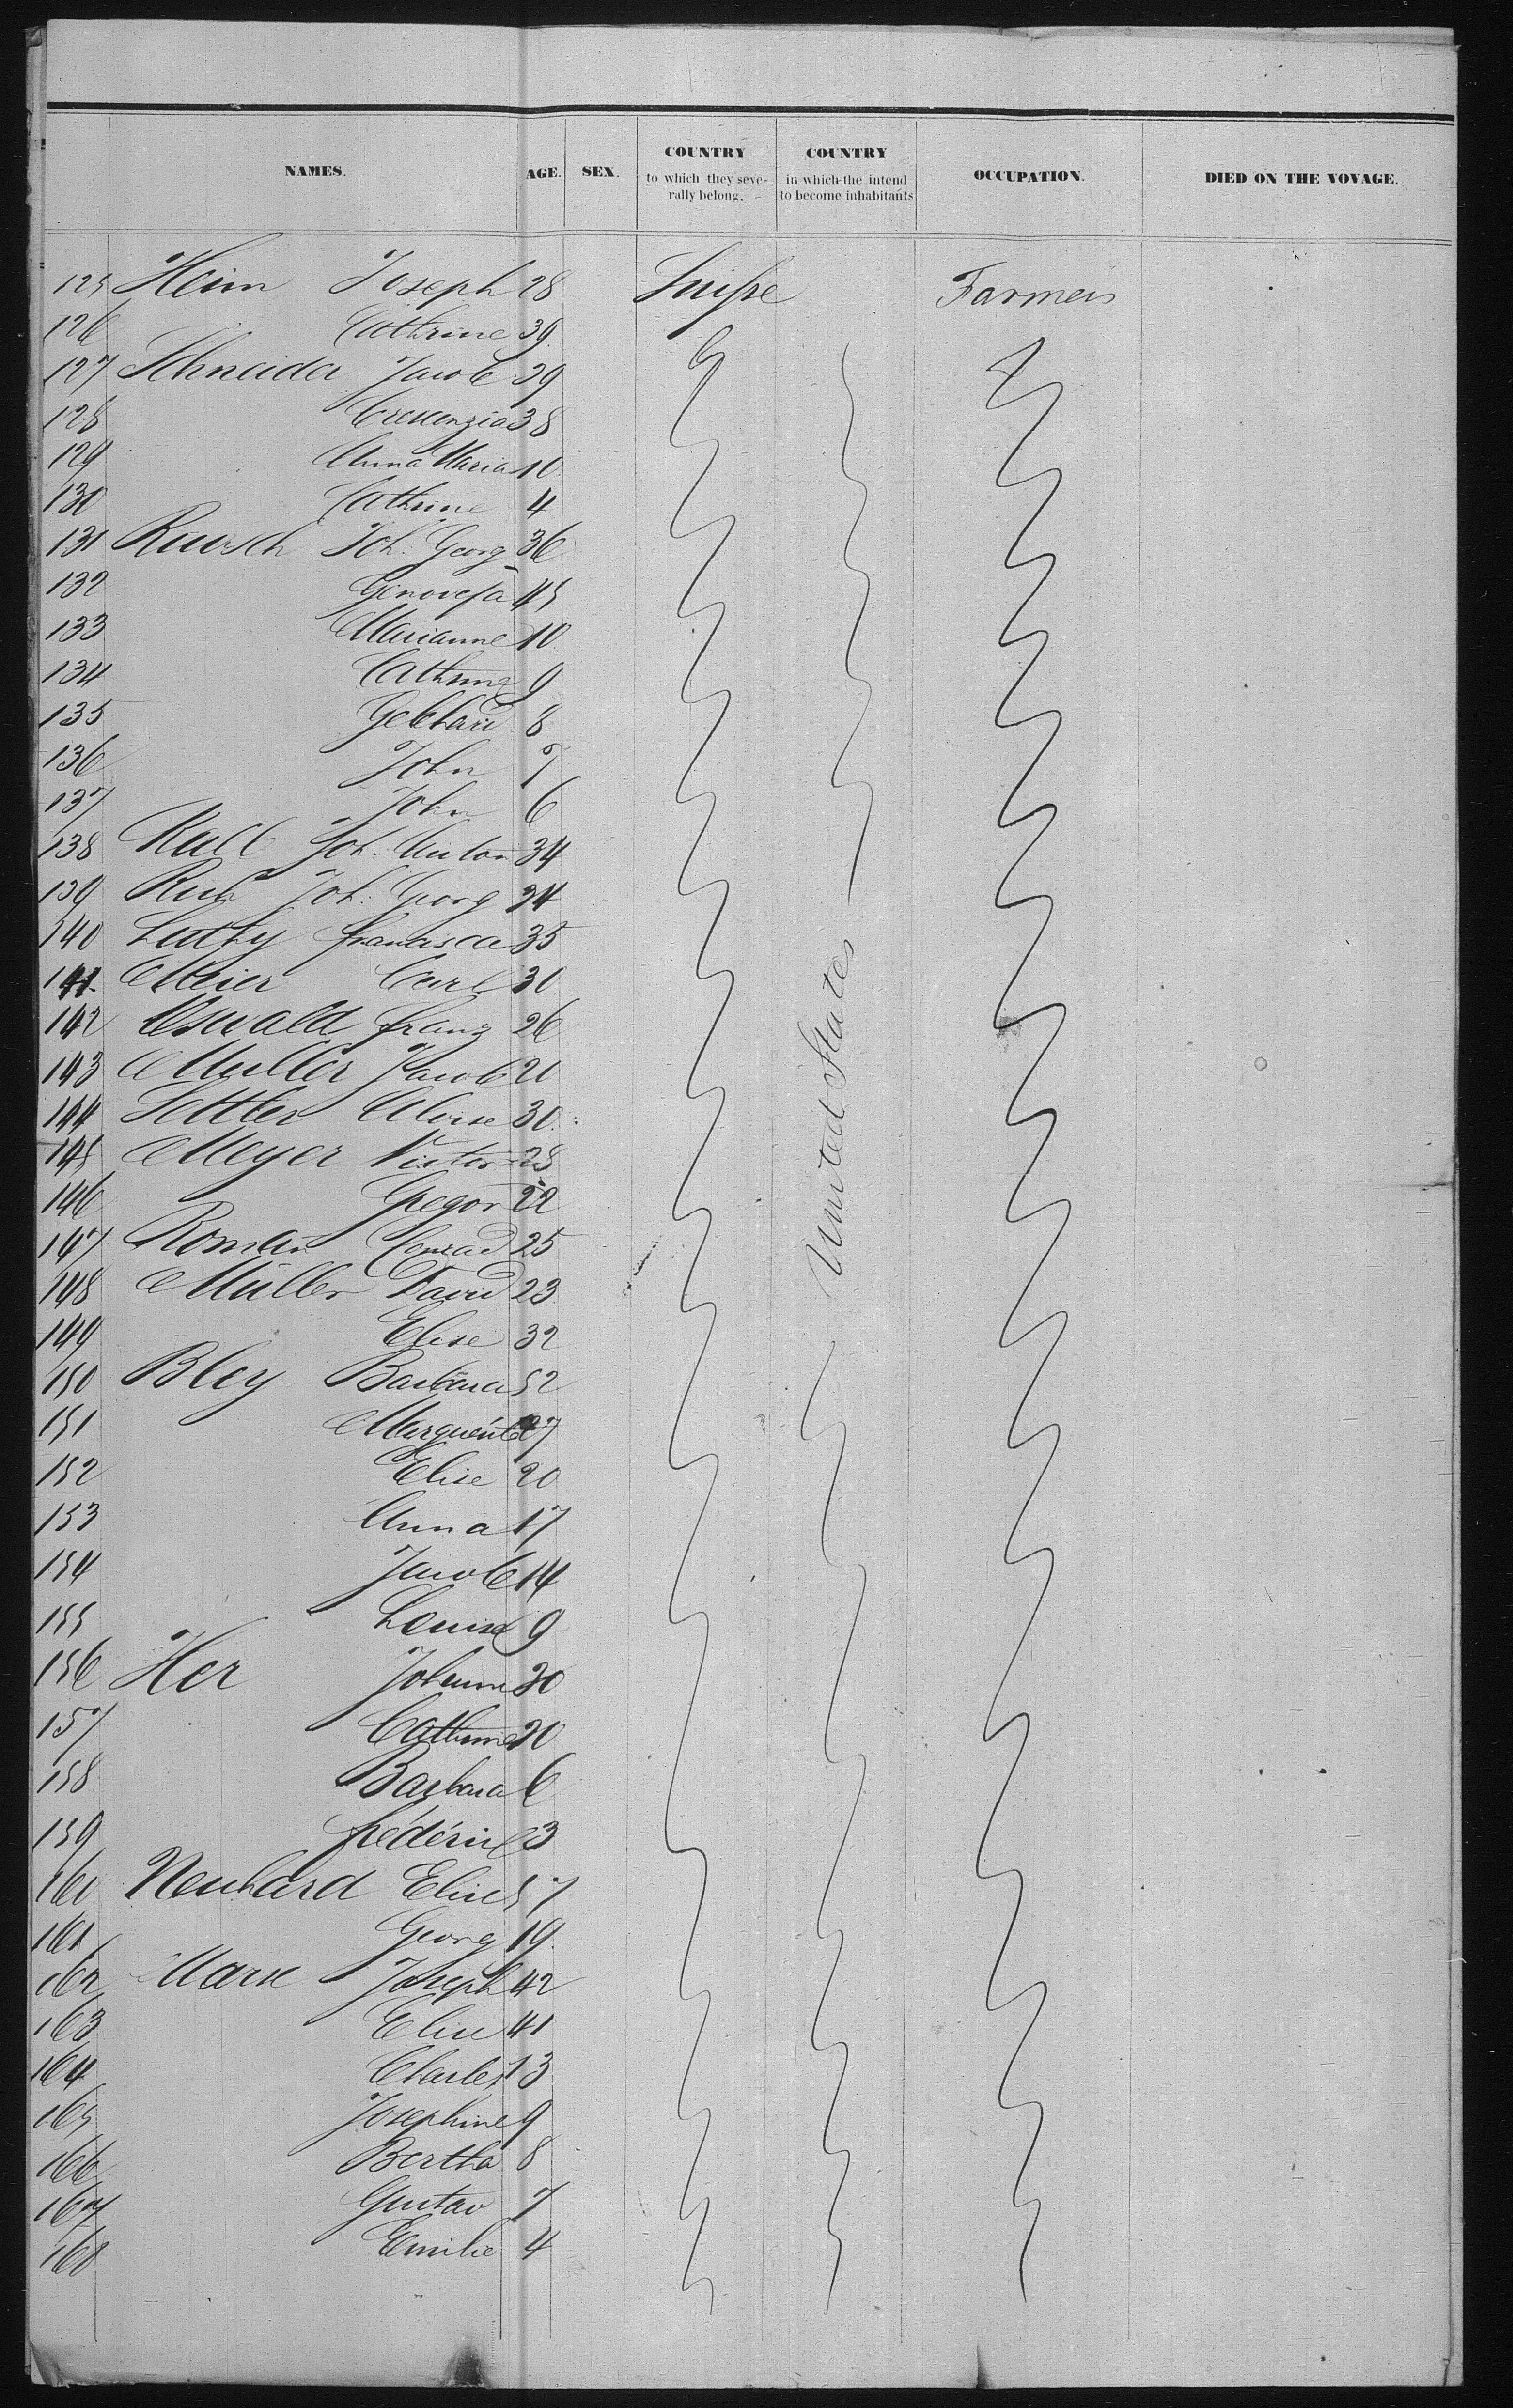 NAMES. AGE. SEX. COUNTRY to which they seve- rally belong. COUNTRY in which the intend to become inhabitants OCCUPATION. DIED ON THE VOYAGE.
125 Heim Joseph 28 Suisse Farmers
126 Cathrine 39
127 Schneider Jacob 39
128 Crescenzia 38
129 Anna Maria 10
130 Cathrine 4
131 Rausch Joh. Georg 36
132 Genovefa 45
133 Marianne 10
134 Cathrine 9
135 Gebhard 8
136 John 7
137 John 6
138 Joh. Anton 34
139 Joh. Georg 24
140 Luthy Francisca 35
141 Meier Carl 30
142 Oswald Franz 26
143 Muller Jacob 20
144 Settler Aloise 30
145 Meyer Victor 28
146 Gregor 22
147 Roman Conrad 25
148 Müller David 23
149 Elise 32
150 Bley Barbara 52
151 Marguerite 27
152 Elise 20
153 Anna 17
154 Jacob 14
155 Louise 9
156 Her Johann 30
157 Cathrine 20
158 Barbara 6
159 Frédéric 3
160 Neuhard Elise 57
161 Georg 19
162 Joseph 42
163 Elise 41
164 Charles 13
165 Josephine 9
166 Bertha 8
167 Gustav 7
168 Emilie 4
United States